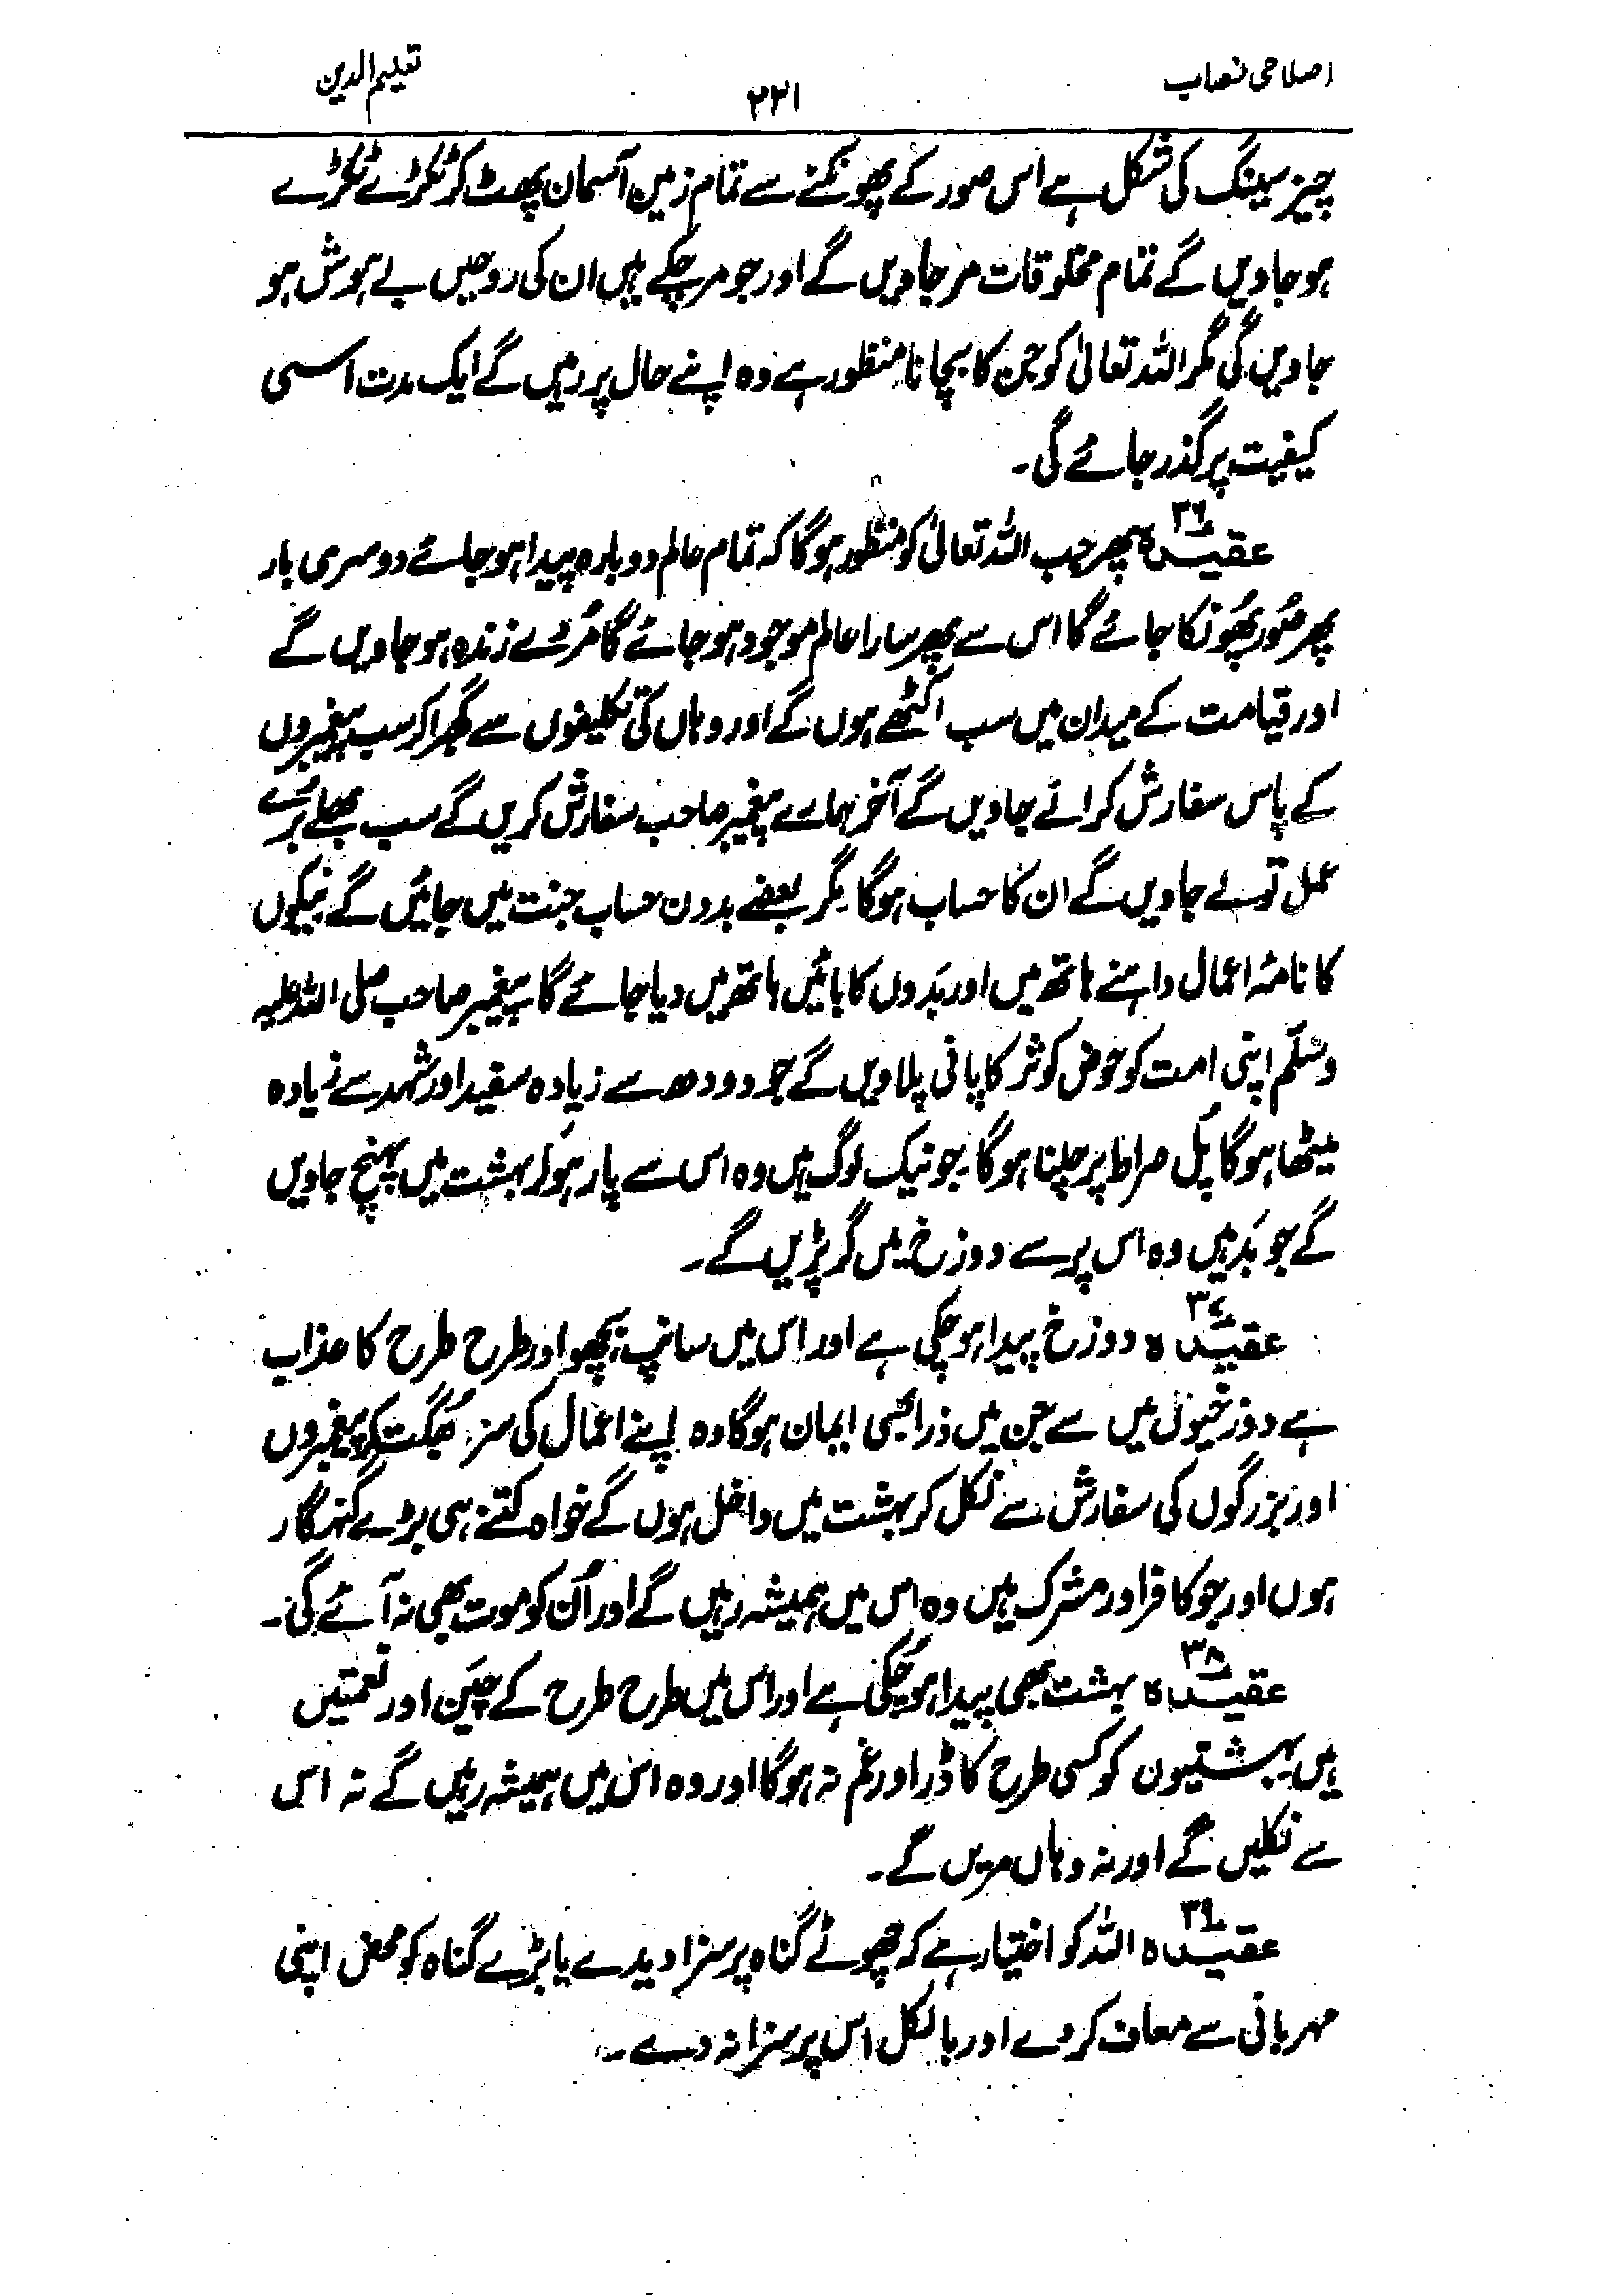 اصلاحی نصاب
۲۲۱
تعلیم الدین
چیز سینگ کی شکل ہے اس صور کے پھونکنے سے تمام زمین آسمان پھٹ کر ٹکڑے ٹکڑے
ہو جاویں گے تمام مخلوقات مر جاویں گے اور جو مر چکے ہیں ان کی روحیں بے ہوش ہو
جاویں گی مگر اللہ تعالیٰ کو جن کا بچانا منظور ہے وہ اپنے حال پر رہیں گے ایک مدت اسی
کیفیت پر گذر جائے گی۔
عقیدہ ۳۶ پھر جب اللہ تعالیٰ کو منظور ہوگا کہ تمام عالم دوبارہ پیدا ہو جائے دوسری بار
پھر صُور پھُونکا جائے گا اس سے پھر سارا عالم موجود ہو جائے گا مُردے زندہ ہو جاویں گے
اور قیامت کے میدان میں سب اکٹھے ہوں گے اور وہاں کی تکلیفوں سے گھبرا کر سب پیغمبروں
کے پاس سفارش کرانے جاویں گے آخر ہمارے پیغمبر صاحب سفارش کریں گے سب بھلے بُرے
عمل تولے جاویں گے ان کا حساب ہوگا مگر بعضے بدون حساب جنت میں جائیں گے نیکوں
کا نامۂ اعمال داہنے ہاتھ میں اور بَدوں کا بائیں ہاتھ میں دیا جائے گا پیغمبر صاحب صلی اللہ علیہ
وسلّم اپنی امت کو حوض کوثر کا پانی پلاویں گے جو دودھ سے زیادہ سفید اور شہد سے زیادہ
میٹھا ہوگا پُل صراط پر چلنا ہوگا۔ جو نیک لوگ ہیں وہ اس سے پار ہو کر بہشت میں پہنچ جاویں
گے جو بَد ہیں وہ اس پر سے دوزخ میں گر پڑیں گے۔
عقیدہ ۳۷ دوزخ پیدا ہو چکی ہے اور اس میں سانپ بچھو اور طرح طرح کا عذاب
ہے دوزخیوں میں سے جن میں ذرا بھی ایمان ہوگا وہ اپنے اعمال کی سزا بھُگت کر پیغمبروں
اور بزرگوں کی سفارش سے نکل کر بہشت میں داخل ہوں گے خواہ کتنے ہی بڑے گنہگار
ہوں اور جو کافر اور مشرک ہیں وہ اس میں ہمیشہ رہیں گے اور اُن کو موت بھی نہ آئے گی۔
عقیدہ ۳۸ بہشت بھی پیدا ہو چُکی ہے اور اس میں طرح طرح کے چَین اور نعمتیں
ہیں بہشتیوں کو کسی طرح کا ڈر اور غم نہ ہوگا اور وہ اس میں ہمیشہ رہیں گے نہ اس
سے نکلیں گے اور نہ وہاں مریں گے۔
عقیدہ ۳۹ اللہ کو اختیار ہے کہ چھوٹے گناہ پر سزا دیدے یا بڑے گناہ کو محض اپنی
مہربانی سے معاف کر دے اور بالکل اس پر سزا نہ دے۔